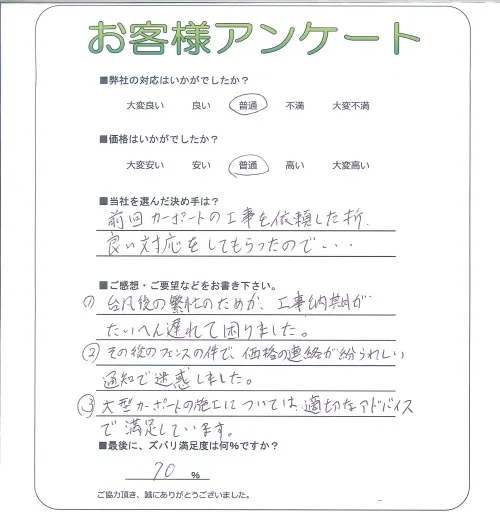 お客様アンケート
■弊社の対応はいかがでしたか？
大変良い 良い 普通 不満 大変不満
■価格はいかがでしたか？
大変安い 安い 普通 高い 大変高い
■当社を選んだ決め手は？
前回カーポートの工事を依頼した折、
良い対応をしてもらったので・・・
■ご感想・ご要望などをお書き下さい。
① 台风後の繁忙のためか、工事納期が
たいへん遅れて困りました。
② その後のフェンスの件で、価格の連絡が紛らわしい
通知で迷惑しました。
③ 大型カーポートの施工については適切なアドバイス
で満足しています。
■最後に、ズバリ満足度は何%ですか？
70 %
ご協力頂き、誠にありがとうございました。